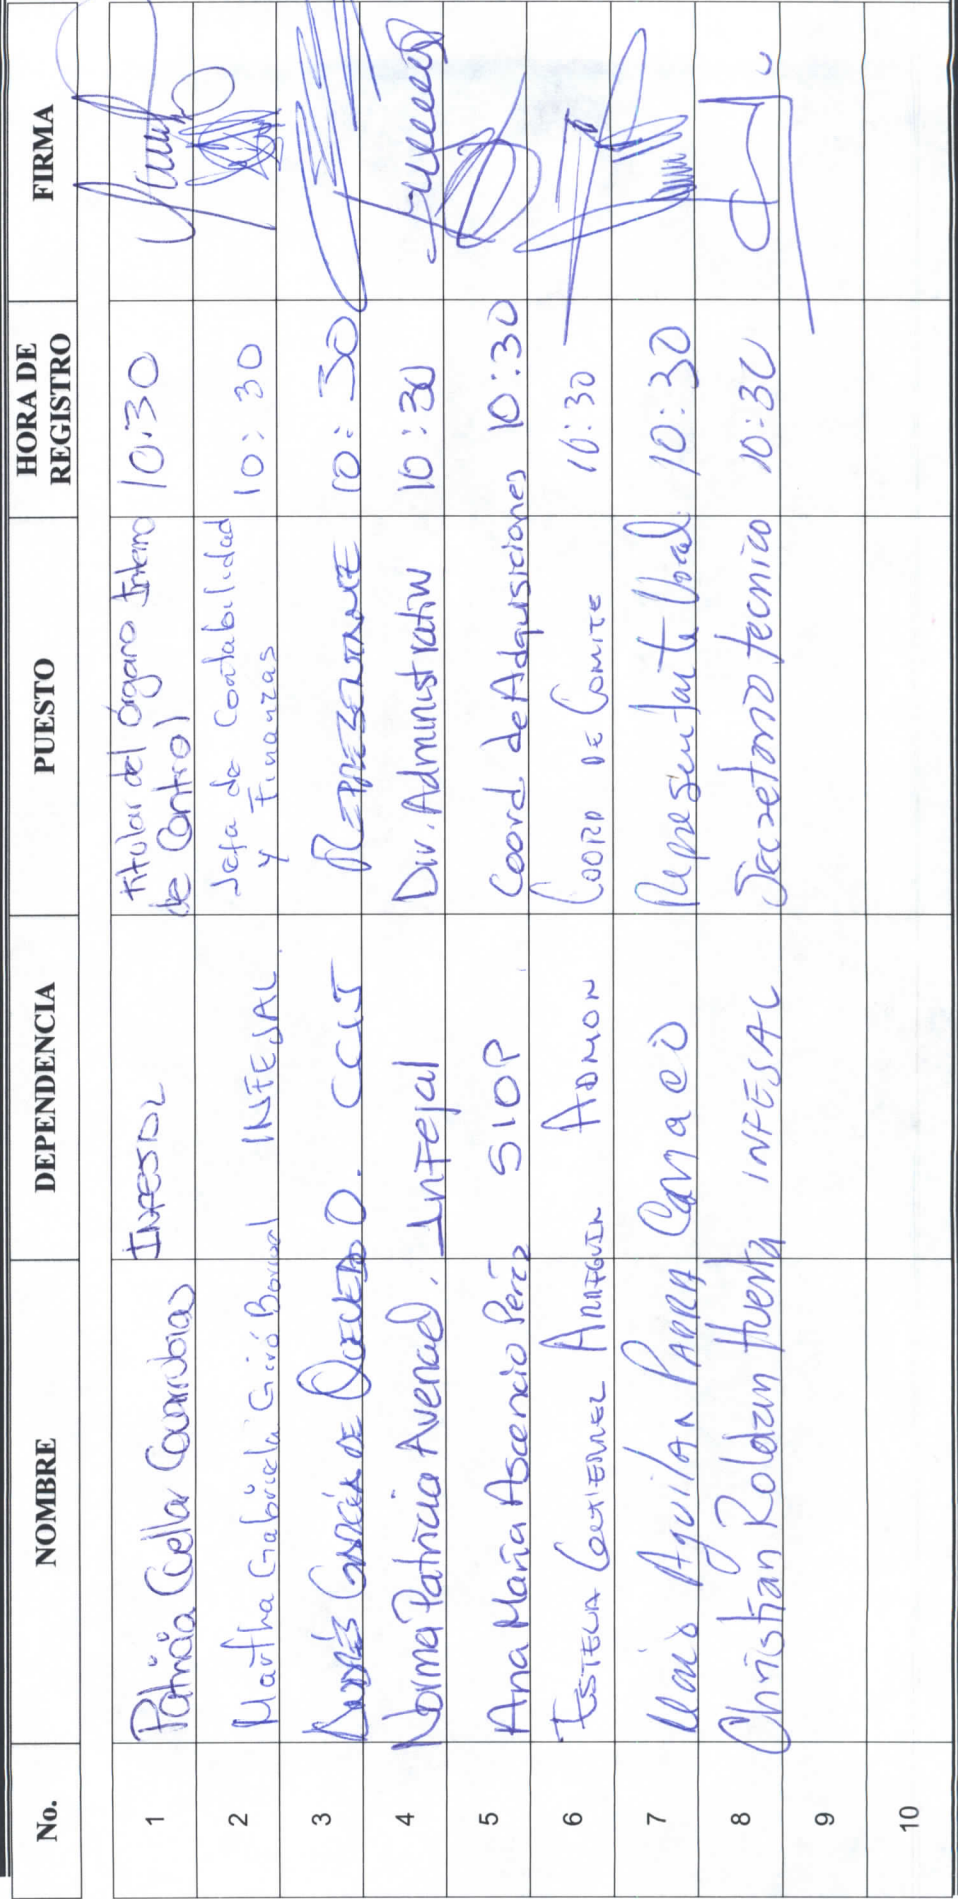 No. NOMBRE DEPENDENCIA PUESTO HORA DE REGISTRO FIRMA
1 Patricia Cuellar INFEJAL Titular del Órgano Interno de Control 10:30
2 Martha Gabriela Giró INFEJAL Jefa de Contabilidad y Finanzas 10:30
3 ANDRÉS GARCÍA DE QUEVEDO O. CCIJ REPRESENTANTE 10:30
4 Norma Patricia Infejal Div. Administrativa 10:30
5 Ana María Ascencio Pérez SIOP Coord de Adquisiciones 10:30
6 ESTELA GUTIERREZ ADMON COORD DE COMITE 10:30
7 Aguilar PARRA Representante Vocal 10:30
8 Christian Roldan Huerta INFEJAL Secretario Tecnico 10:30
9
10